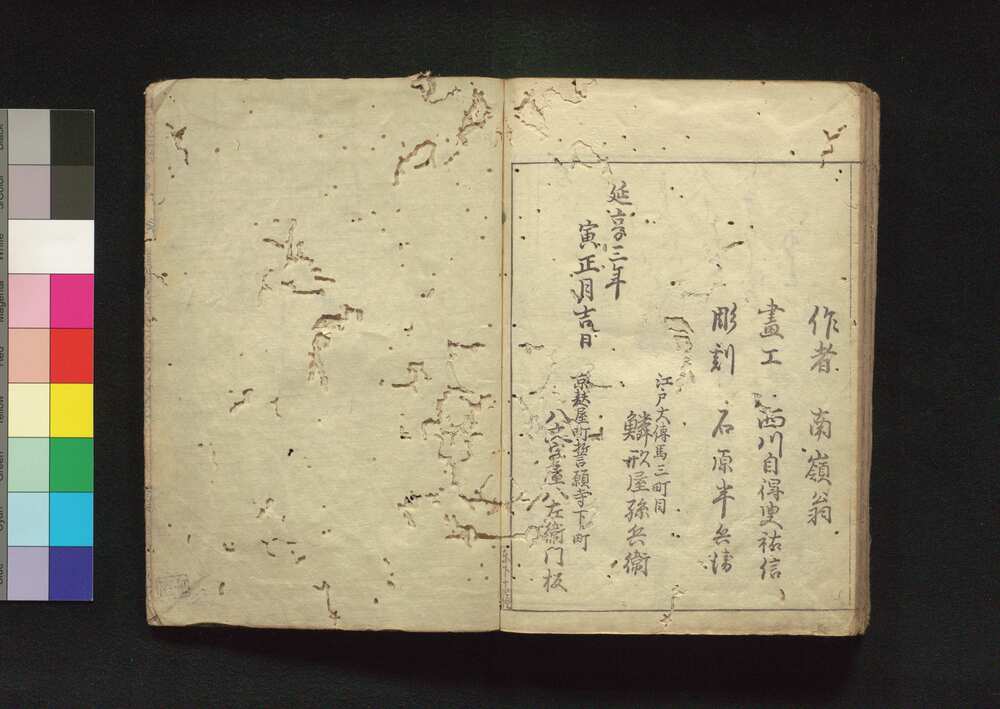 作者 南嶺翁
畫工 西川自得叟祐信
彫刻 石原半兵衛
江戸大傳馬三町目
鱗形屋孫兵衛
延享三年
寅正月吉日
京麩屋町誓願寺下町
八文字屋八左衛門板